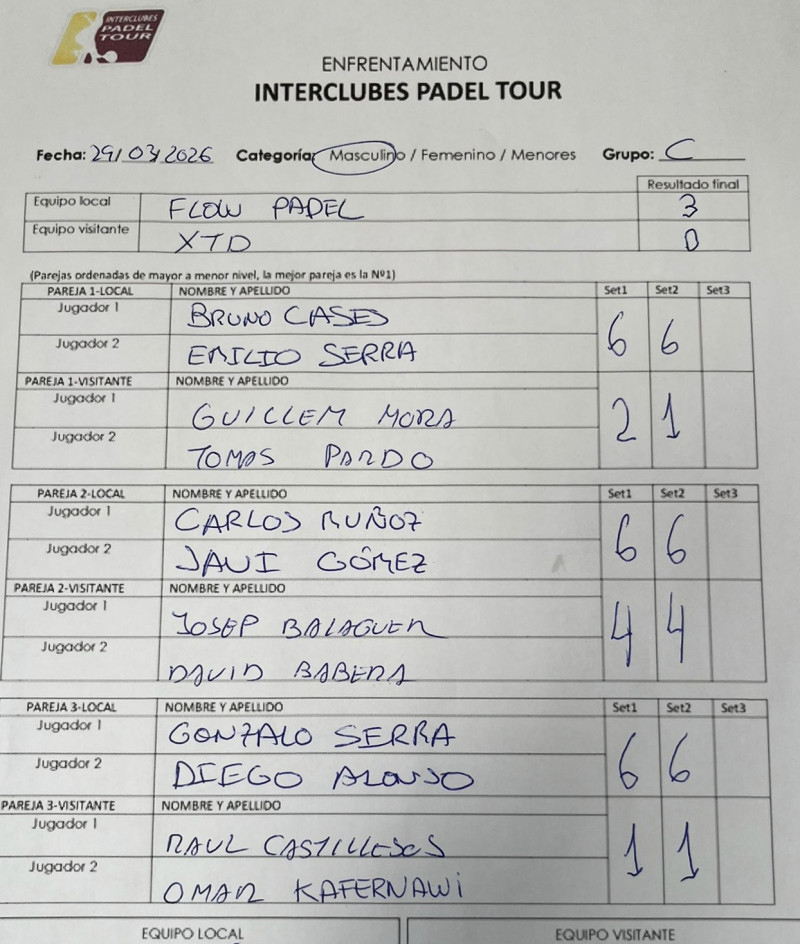 INTERCLUBES
PADEL
TOUR
ENFRENTAMIENTO
INTERCLUBES PADEL TOUR
Fecha: 29/03/2026 Categoría: Masculino / Femenino / Menores Grupo: C
Resultado final
Equipo local FLOW PADEL 3
Equipo visitante XTD 0
(Parejas ordenadas de mayor a menor nivel, la mejor pareja es la Nº1)
PAREJA 1-LOCAL NOMBRE Y APELLIDO Set1 Set2 Set3
Jugador 1 BRUNO CASES
6 6
Jugador 2 EMILIO SERRA
PAREJA 1-VISITANTE NOMBRE Y APELLIDO
Jugador 1 GUILLEM MORA
2 1
Jugador 2 TOMAS PARDO
PAREJA 2-LOCAL NOMBRE Y APELLIDO Set1 Set2 Set3
Jugador 1 CARLOS MUÑOZ
6 6
Jugador 2 JAVI GÓMEZ
PAREJA 2-VISITANTE NOMBRE Y APELLIDO
Jugador 1 JOSEP BALAGUER
4 4
Jugador 2 DAVID BABERA
PAREJA 3-LOCAL NOMBRE Y APELLIDO Set1 Set2 Set3
Jugador 1 GONZALO SERRA
6 6
Jugador 2 DIEGO ALONSO
PAREJA 3-VISITANTE NOMBRE Y APELLIDO
Jugador 1 RAUL
1 1
Jugador 2 OMAR KAFERNAWi
EQUIPO LOCAL EQUIPO VISITANTE